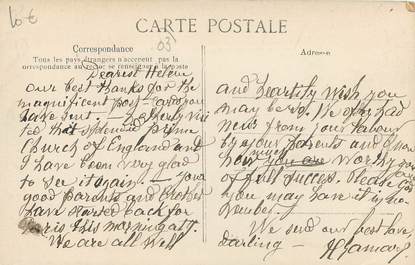 CARTE POSTALE
Correspondance
Tous les pays étrangers n'acceptent pas la
correspondance au recto: se renseigner à la poste
Adresse
Dearest Helene
our best thanks for the
magnificent post-cards you
have sent. - I
ted that splendid
Church of England and
I have been very glad
to see it again. - Your
good parents and brother
have started back for
Paris this morning at 7.
We are all well
and heartily wish you
may be so. We often had
news from your labour
by your parents and I know
how much you are worthy
of full success. Please God
you may have it in no-
vember.
We send our best love,
darling -